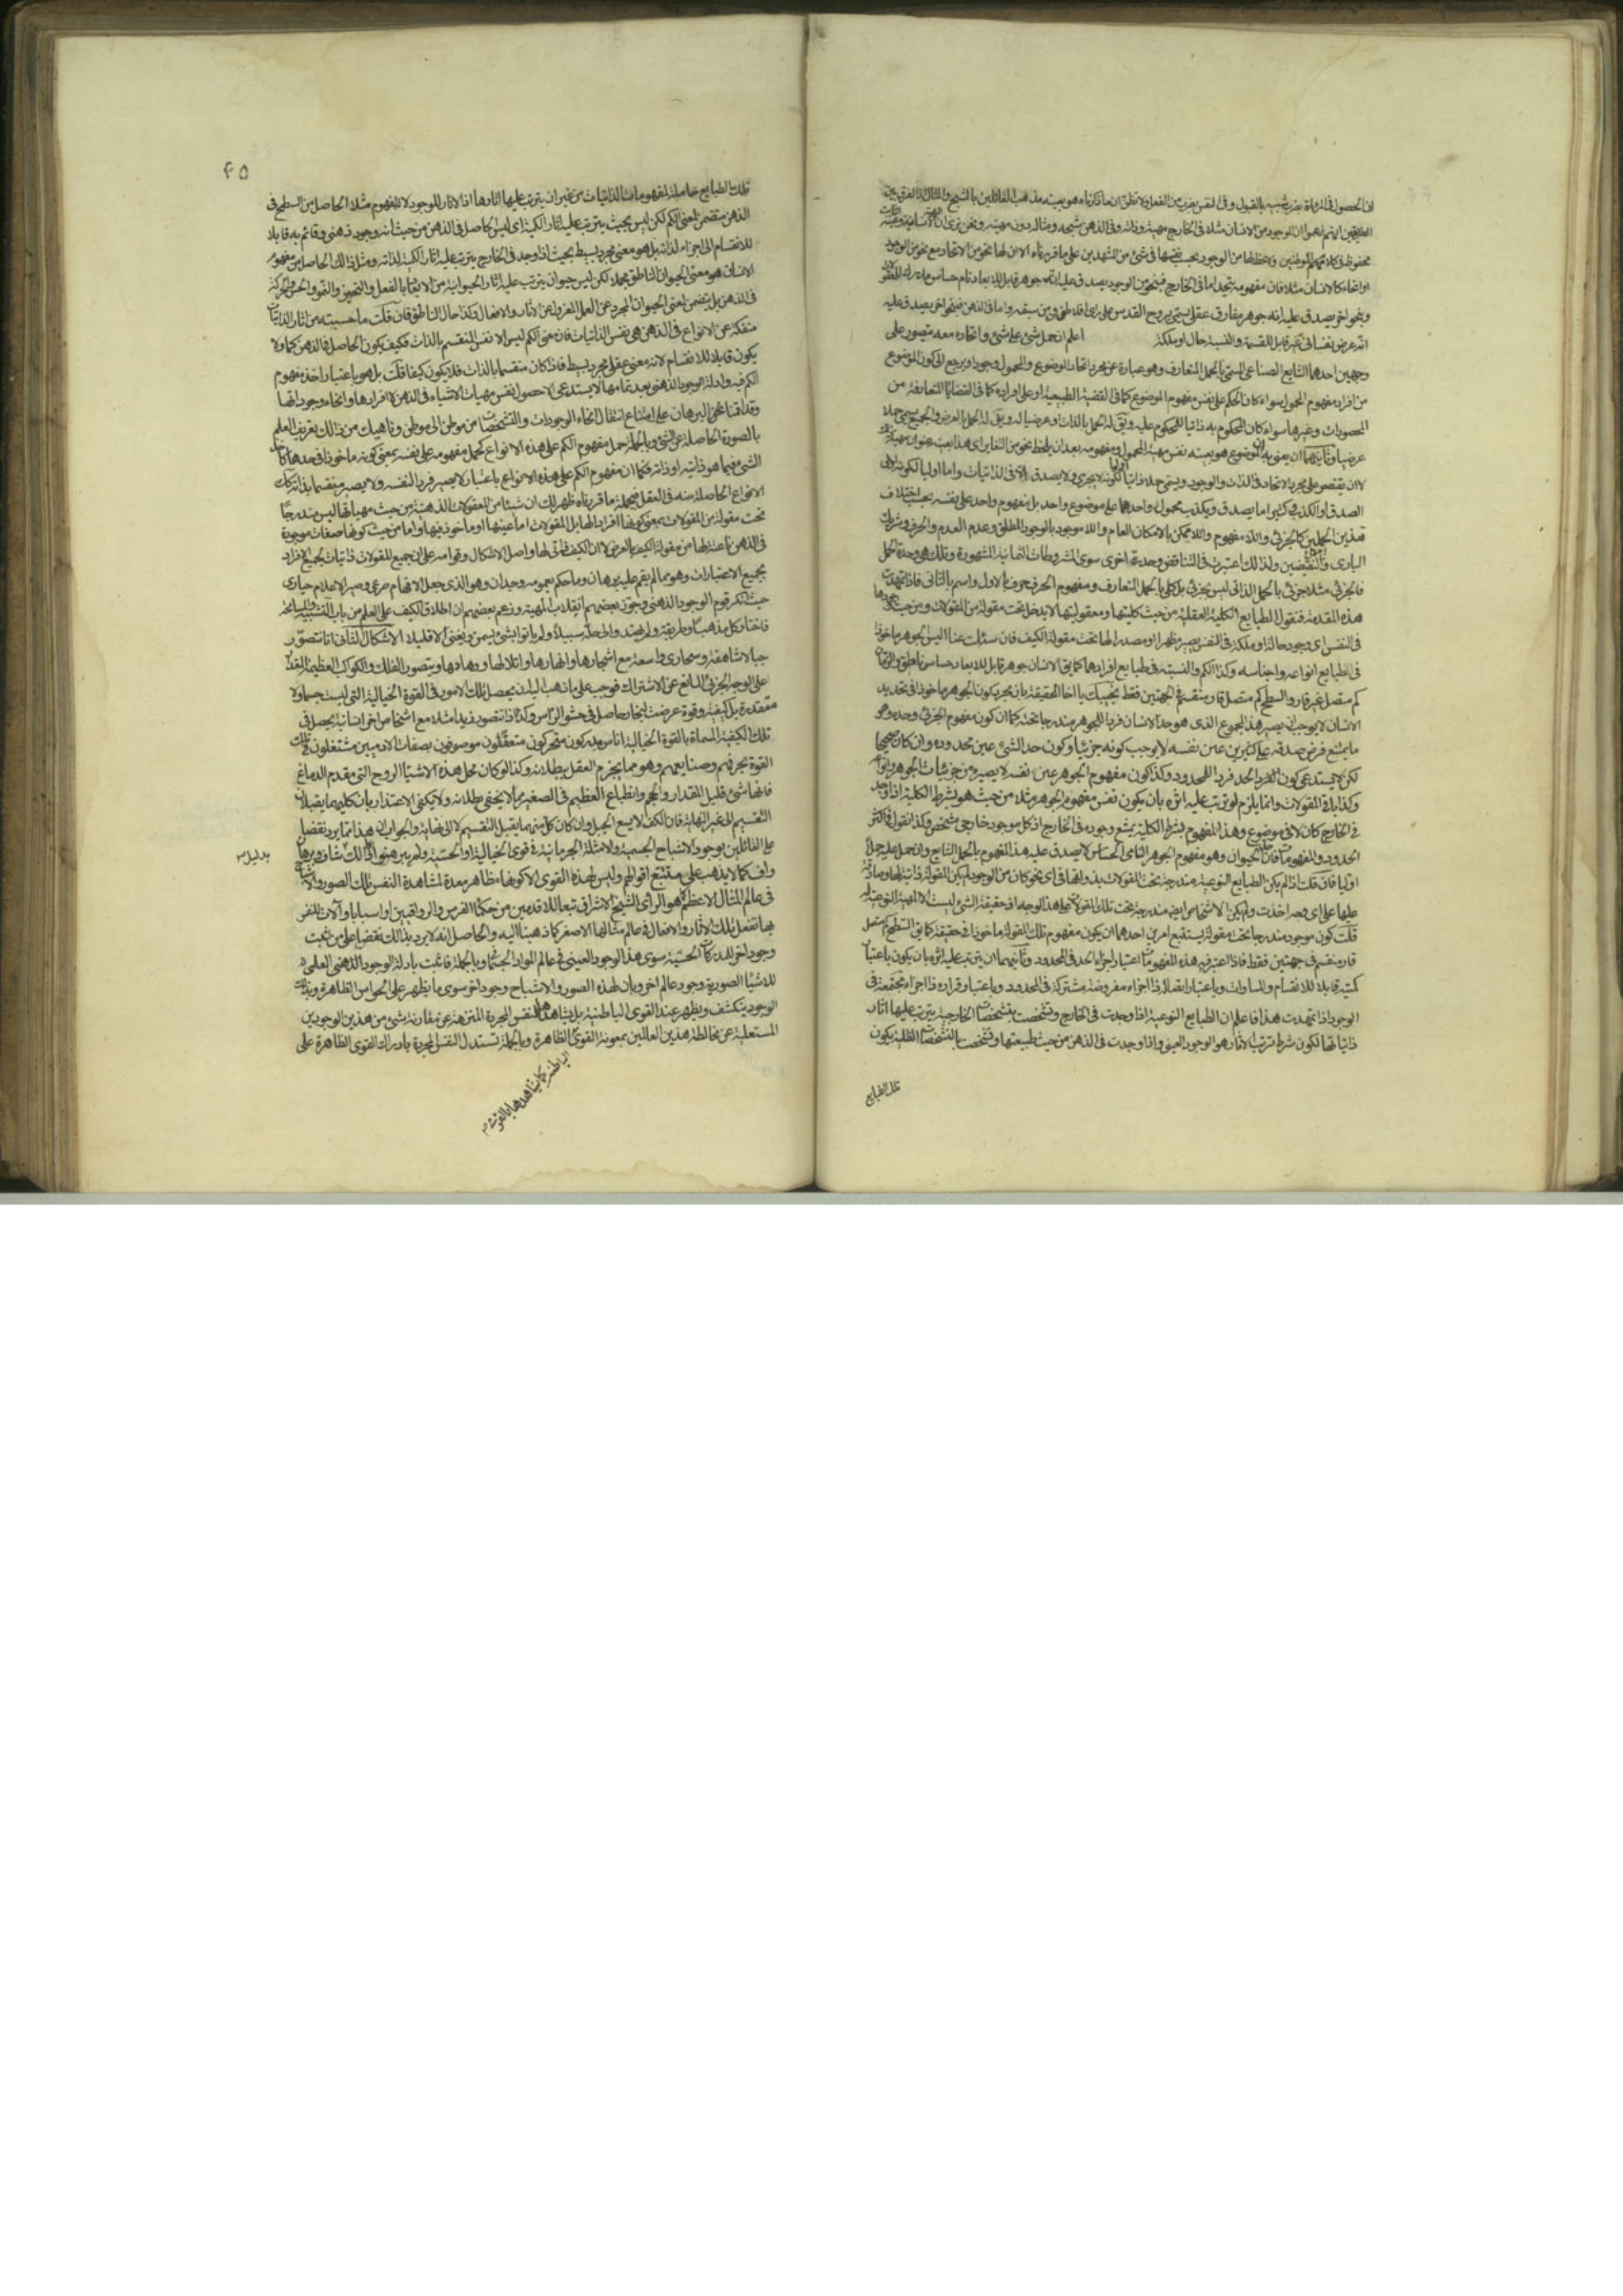 ان الحصول في المادة بضرب شبيه بالقبول وفى النفس بضرب من الفعل ولا تظنن ان ما ذكرناه هو بعينه مذهب القائلين بالشبح والمثال اذ الفرق بين
الطريقين انهم زعموا ان الموجود من الانسان مثلا في الخارج مهيته وذاته وفى الذهن شبحه ومثاله دون مهيته ونحن نرى ان
محفوظ في كلا الموطنين لا حظ لها من الوجود بحسب نفسها في شئ من المشهدين على ما قررناه الا ان لها نحوا من الاتحاد مع نحو من الوجود
او انحاء كالانسان مثلا فان مفهومه يتحد اما في الخارج فبنحو من الوجود يصدق عليه انه جوهر قابل للابعاد نام حساس مدرك
وبنحو اخر يصدق عليه انه جوهر مفارق عقلى يسمى بروح القدس على راى افلاطن ومن سبقه واما في الذهن فبنحو اخر يصدق عليه
انه عرض نفسانى غير قابل للقسمة والنسبة حال او ملكة اعلم ان حمل شئ على شئ واتحاده معه يتصور على
وجهين احدهما الشايع الصناعى المسمى بالحمل المتعارف وهو عبارة عن مجرد اتحاد الموضوع والمحمول وجودا ويرجع الى كون الموضوع
من افراد مفهوم المحمول سواء كان الحكم على نفس مفهوم الموضوع كما في القضية الطبيعية او على افراده كما في القضايا المتعارفة من
المحصورات وغيرها سواء كان المحكوم به ذاتيا للمحكوم عليه ويق له الحمل بالذات او عرضيا له ويق له الحمل بالعرض والجميع يسمى حملا
عرضيا وثانيهما ان يعنى به ان الموضوع هو بعينه نفس مهية المحمول ومفهومه بعد ان يلحظ نحو من التغاير اى هذا بعينه عنوان مهية ذلك
لا ان يقتصر على مجرد الاتحاد في الذات والوجود ويسمى حملا ذاتيا اوليا لكونه لا يجرى ولا يصدق الا في الذاتيات واما اوليا لكونه اولى
الصدق او الكذب فكثيرا ما يصدق ويكذب محمول واحد على موضوع واحد بل مفهوم واحد على نفسه بحسب اختلاف
هذين الحملين كالجزئى واللا مفهوم واللا ممكن بالامكان العام واللا موجود بالوجود المطلق وعدم العدم والحرف وشريك
البارى والنقيضين ولذلك اعتبرت في التناقض وحدة اخرى سوى المشروطات الثمانية المشهورة وتلك هى وحدة الحمل
فالجزئى مثلا جزئى بالحمل الذاتى ليس بجزئى بل كلى بالحمل المتعارف ومفهوم الحرف حرف بالاول واسم بالثانى فاذا تمهدت
هذه المقدمة فنقول الطبايع الكلية العقلية من حيث كليتها ومعقوليتها لا يدخل تحت مقولة من المقولات ومن حيث وجودها
في النفس اى وجود حالة او ملكة في النفس يصير مظهرا او مصدرا لها تحت مقولة الكيف فان سئلت عنا اليس الجوهر ماخوذا
في طبايع انواعه واجناسه وكذا الكم والنسبة في طبايع افرادهما كما يق الانسان جوهر قابل للابعاد حساس ناطق والزمان
كم متصل غير قار والسطح كم متصل قار منقسم في الجهتين فقط نجيبك يا اخا الحقيقة بان مجرد كون الجوهر ماخوذا في تحديد
الانسان لا يوجب ان يصير هذا المجموع الذى هو حد الانسان فردا للجوهر مندرجا تحته كما ان كون مفهوم الجزئى وحده وهو
ما يمتنع فرض صدقه على كثيرين عين نفسه لا يوجب كونه جزئيا وكون حد الشئ عين محدوده وان كان صحيحا
لكن لا يستدعى كون الحد فردا للمحدود وكذا كون مفهوم الجوهر عين نفسه لا يصيره من جزئيات الجوهر وانواعه
وكذا باقى المقولات وانما يلزم لو ترتب عليه اثره بان يكون نفس مفهوم الجوهر مثلا من حيث هو بشرط الكلية اذا وجد
في الخارج كان لا في موضوع وهذا المفهوم بشرط الكلية يمتنع وجوده في الخارج اذ كل موجود خارجى مشخص وكذا نقول في اكثر
الحدود والمفهومات فان حد الحيوان وهو مفهوم الجوهر النامى الحساس لا يصدق عليه هذا المفهوم بالحمل الشايع وان حمل عليه حملا
اوليا فان قلت اذا لم يكن الطبايع النوعية مندرجة تحت المقولات بذواتها في اى نحو كان من الوجود لم يكن المقولة ذاتية لها وصادقة
عليها على اى وجه اخذت ولم يكن الاشخاص ايضا مندرجة تحت تلك المقولات على هذا الوجه اذ حقيقة الشئ ليست الا المهية النوعية له
قلت كون موجود مندرجا تحت مقولة يستتبع امرين احدهما ان يكون مفهوم تلك المقولة ماخوذا في حقيقته كما يق السطح كم متصل
قار منقسم في جهتين فقط فاذا اعتبر فيه هذه المفهومات اعتبار اجزاء الحد في المحدود وثانيهما ان يترتب عليه اثره بان يكون باعتبار
كميته قابلا للانقسام والمساوات وباعتبار اتصاله ذا اجزاء مفروضة مشتركة في الحدود وباعتبار قراره ذا اجزاء مجتمعة في
الوجود اذا تمهدت هذا فاعلم ان الطبايع النوعية اذا وجدت في الخارج وتشخصت بتشخصات الخارجية يترتب عليها اثار
ذاتياتها لكون شرط ترتب الاثار هو الوجود العينى واذا وجدت في الذهن من حيث طبيعتها وتشخصت بالتشخصات الظلية يكون
تلك الطبايع
٤٥
تلك الطبايع حاملة لمفهومات الذاتيات من غير ان يترتب عليها اثارها اذ الاثار للوجود لا للمفهوم مثلا الحاصل من السطح في
الذهن متضمن لمعنى الكم لكن ليس بحيث يترتب عليه اثار الكمية اى ليس الحاصل في الذهن من حيث انه وجود ذهنى وقائم به قابلا
للانقسام الى اجزاء لذاته بل هو معنى مجرد بسيط بحيث اذا وجد في الخارج يترتب عليه اثار الكمية لذاته ومثل ذلك الحاصل من مفهوم
الانسان هو معنى الحيوان الناطق مجملا لكن ليس حيوان يترتب عليه اثار الحيوانية من الابعاد بالفعل والتحيز والنمو والحس والحركة
في الذهن بل يتضمن لمعنى الحيوان المجرد عن العمل المعزول عن الاثار والافعال وكذا حال الناطق فان قلت ما حسبته من اثار الذاتيات
منفكة عن الانواع في الذهن هى نفس الذاتيات فان معنى الكم ليس الا نفس المنقسم بالذات فكيف يكون الحاصل في الذهن كما ولا
يكون قابلا للانقسام لانه معنى عقلى مجرد بسيط فاذا كان منقسما بالذات فلا يكون كيفا قلت بل هو باعتبار اخذ مفهوم
الكم فيه وادلة الوجود الذهنى بعد تمامها لا يستدعى الا حصول نفس مهيات الاشياء في الذهن لا افرادها وانحاء وجوداتها
وقد اقمنا نحن البرهان على امتناع انتقال انحاء الوجودات والتشخصات من موطن الى موطن وناهيك من ذلك تعريف العلم
بالصورة الحاصلة عن الشئ وبالجملة حمل مفهوم الكم على هذه الانواع كحمل مفهومه على نفسه بمعنى كونه ماخوذا في حدها كاخذ
الشئ فيما هو ذاتيه او ذاته فكما ان مفهوم الكم على هذه الانواع باعتبار لا يصير فردا لنفسه ولا يصير منقسما بذاته كك
الانواع الحاصلة منه في العقل فبجملة ما قررناه ظهر لك ان شيئا من المعقولات الذهنية من حيث مهياتها ليس مندرجا
تحت مقولة من المقولات بمعنى كونها افرادا لها بل المقولات اما عينها او ماخوذ فيها واما من حيث كونها صفات موجودة
في الذهن ناعتة لها من مقولة الكيف بالعرض لا ان الكيف ذاتى لها واصل الاشكال وقوامه على ان جميع المقولات ذاتيات لجميع الافراد
بجميع الاعتبارات وهو مما لم يقم عليه برهان وما حكم بعمومه وجدان وهو الذى جعل الافهام صرعى وصير الاعلام حيارى
حيث انكر قوم الوجود الذهنى وجوز بعضهم انقلاب المهية وزعم بعضهم ان اطلاق الكيف على العلم من باب التشبيه والمسامحة
فاختار كل مذهبا وطريقة ولم يهتدوا الى حله سبيلا ولم ياتوا بشئ يسمن ويغنى الا قليلا الاشكال الثانى انا نتصور
جبالا شاهقة وصحارى واسعة مع اشجارها وانهارها وتلالها ووهادها ونتصور الفلك والكواكب العظيمة المقدار
على الوجه الجزئى المانع عن الاشتراك فوجب على ما ذهب اليه ان يحصل تلك الامور في القوة الخيالية التى ليست جسما ولا
متقدرة بل كيفية وقوة عرضت لبخار حاصل في حشو الراس وكذا اذا نتصور زيدا مثلا مع اشخاص اخر انسانية يحصل في
تلك الكيفية المسماة بالقوة الخيالية اناس مدركون متحركون متعقلون موصوفون بصفات الادميين مشتغلون في تلك
القوة بحرفهم وصنايعهم وهو مما يجزم العقل ببطلانه وكذا لو كان محل هذه الاشياء الروح التى في مقدم الدماغ
فانها شئ قليل المقدار والحجم وانطباع العظيم في الصغير مما لا يخفى بطلانه ولا يكفى الاعتذار بان كليهما يقبلان
التقسيم الى غير النهاية فان الكف لا يسع الجبل وان كان كل منهما يقبل التقسيم لا الى نهاية والجواب ان هذا انما يرد نقضا
على القائلين بوجود الاشباح الجسمية والامثلة الجرمانية في القوى الخيالية او الحسية ولم يبرهنوا ذلك
بدليل
كما لا يذهب على متتبع اقوالهم وليس لهذه القوى الا كونها مظاهر معدة لمشاهدة النفس تلك الصور والاشباح
في عالم المثال الاعظم كما هو الراى الشيخ الاشراق تبعا للاقدمين من حكماء الفرس والرواقيين او اسبابا وآلات للنفس
بها تفعل تلك الاثار والافعال في عالم مثالها الاصغر كما ذهبنا اليه والحاصل انه لا يرد بذلك نقضا على من اثبت
وجودا اخر للمدركات الحسية سوى هذا الوجود العينى في عالم المواد الجسمانية وبالجملة فاثبت بادلة الوجود الذهنى العلمى
للاشياء الصورية وجود عالم اخر وبان لهذه الصور والاشباح وجود اخر سوى ما يظهر على الحواس الظاهرة وبذلك
الوجود ينكشف ويظهر عند القوى الباطنية بل يشاهدها النفس المجردة المتنزهة عن مقارنة شئ من هذين الوجودين
المستعلية عن مخالطة هذين العالمين بمعونة القوى الظاهرة وبالجملة تستدل النفس المجردة بادراك القوى الظاهرة على
الباطنية كما يشاهدها بالقوى